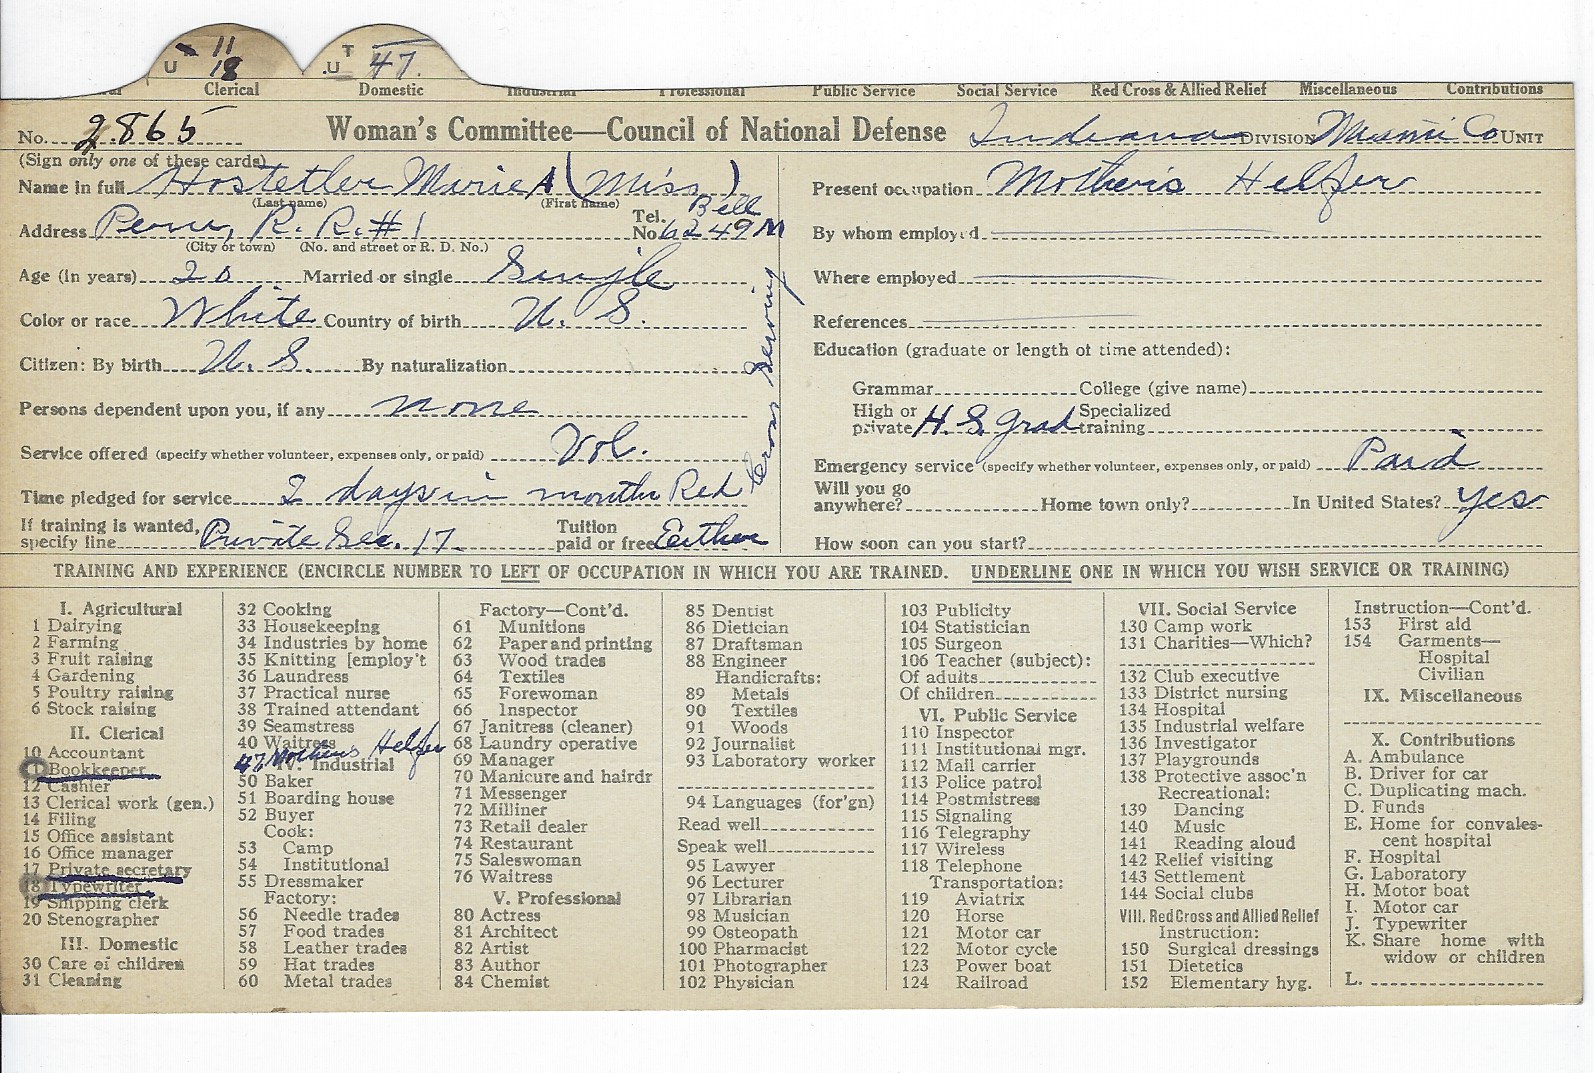 11
U 18
T
U 47.
Clerical Domestic Industrial Professional Public Service Social Service Red Cross & Allied Relief Miscellaneous Contributions
No. 2865 Woman's Committee—Council of National Defense Indiana DIVISION Miami Co UNIT
(Sign only one of these cards)
Name in full Hostetler Marie A (Miss)
(Last name) (First name)
Address Peru, R. R. #1 Tel. No. Bell 6249 M
(City or town) (No. and street or R. D. No.)
Age (in years) 20 Married or single Single
Color or race White Country of birth U. S.
Citizen: By birth U. S. By naturalization
Persons dependent upon you, if any none
Service offered (specify whether volunteer, expenses only, or paid) Vol.
Time pledged for service 2 days in month Red Cross Sewing
If training is wanted, specify line Private Sec. 17 Tuition paid or free Either
Present occupation Mother's Helper
By whom employed
Where employed
References
Education (graduate or length of time attended):
Grammar College (give name)
High or private H. S. Grad Specialized training
Emergency service (specify whether volunteer, expenses only, or paid) Paid
Will you go anywhere? Home town only? In United States? Yes
How soon can you start?
TRAINING AND EXPERIENCE (ENCIRCLE NUMBER TO LEFT OF OCCUPATION IN WHICH YOU ARE TRAINED. UNDERLINE ONE IN WHICH YOU WISH SERVICE OR TRAINING)
I. Agricultural
1 Dairying
2 Farming
3 Fruit raising
4 Gardening
5 Poultry raising
6 Stock raising
II. Clerical
10 Accountant
11 Bookkeeper
12 Cashier
13 Clerical work (gen.)
14 Filing
15 Office assistant
16 Office manager
17 Private secretary
18 Typewriter
19 Shipping clerk
20 Stenographer
III. Domestic
30 Care of children
31 Cleaning
32 Cooking
33 Housekeeping
34 Industries by home
35 Knitting [employ't
36 Laundress
37 Practical nurse
38 Trained attendant
39 Seamstress
40 Waitress
47 Mothers Helper
IV. Industrial
50 Baker
51 Boarding house
52 Buyer
Cook:
53 Camp
54 Institutional
55 Dressmaker
Factory:
56 Needle trades
57 Food trades
58 Leather trades
59 Hat trades
60 Metal trades
Factory—Cont'd.
61 Munitions
62 Paper and printing
63 Wood trades
64 Textiles
65 Forewoman
66 Inspector
67 Janitress (cleaner)
68 Laundry operative
69 Manager
70 Manicure and hairdr
71 Messenger
72 Milliner
73 Retail dealer
74 Restaurant
75 Saleswoman
76 Waitress
V. Professional
80 Actress
81 Architect
82 Artist
83 Author
84 Chemist
85 Dentist
86 Dietician
87 Draftsman
88 Engineer
Handicrafts:
89 Metals
90 Textiles
91 Woods
92 Journalist
93 Laboratory worker
94 Languages (for'gn)
Read well
Speak well
95 Lawyer
96 Lecturer
97 Librarian
98 Musician
99 Osteopath
100 Pharmacist
101 Photographer
102 Physician
103 Publicity
104 Statistician
105 Surgeon
106 Teacher (subject):
Of adults
Of children
VI. Public Service
110 Inspector
111 Institutional mgr.
112 Mail carrier
113 Police patrol
114 Postmistress
115 Signaling
116 Telegraphy
117 Wireless
118 Telephone
Transportation:
119 Aviatrix
120 Horse
121 Motor car
122 Motor cycle
123 Power boat
124 Railroad
VII. Social Service
130 Camp work
131 Charities—Which?
132 Club executive
133 District nursing
134 Hospital
135 Industrial welfare
136 Investigator
137 Playgrounds
138 Protective assoc'n
Recreational:
139 Dancing
140 Music
141 Reading aloud
142 Relief visiting
143 Settlement
144 Social clubs
VIII. Red Cross and Allied Relief
Instruction:
150 Surgical dressings
151 Dietetics
152 Elementary hyg.
Instruction—Cont'd.
153 First aid
154 Garments—
Hospital
Civilian
IX. Miscellaneous
X. Contributions
A. Ambulance
B. Driver for car
C. Duplicating mach.
D. Funds
E. Home for convales-
cent hospital
F. Hospital
G. Laboratory
H. Motor boat
I. Motor car
J. Typewriter
K. Share home with
widow or children
L.